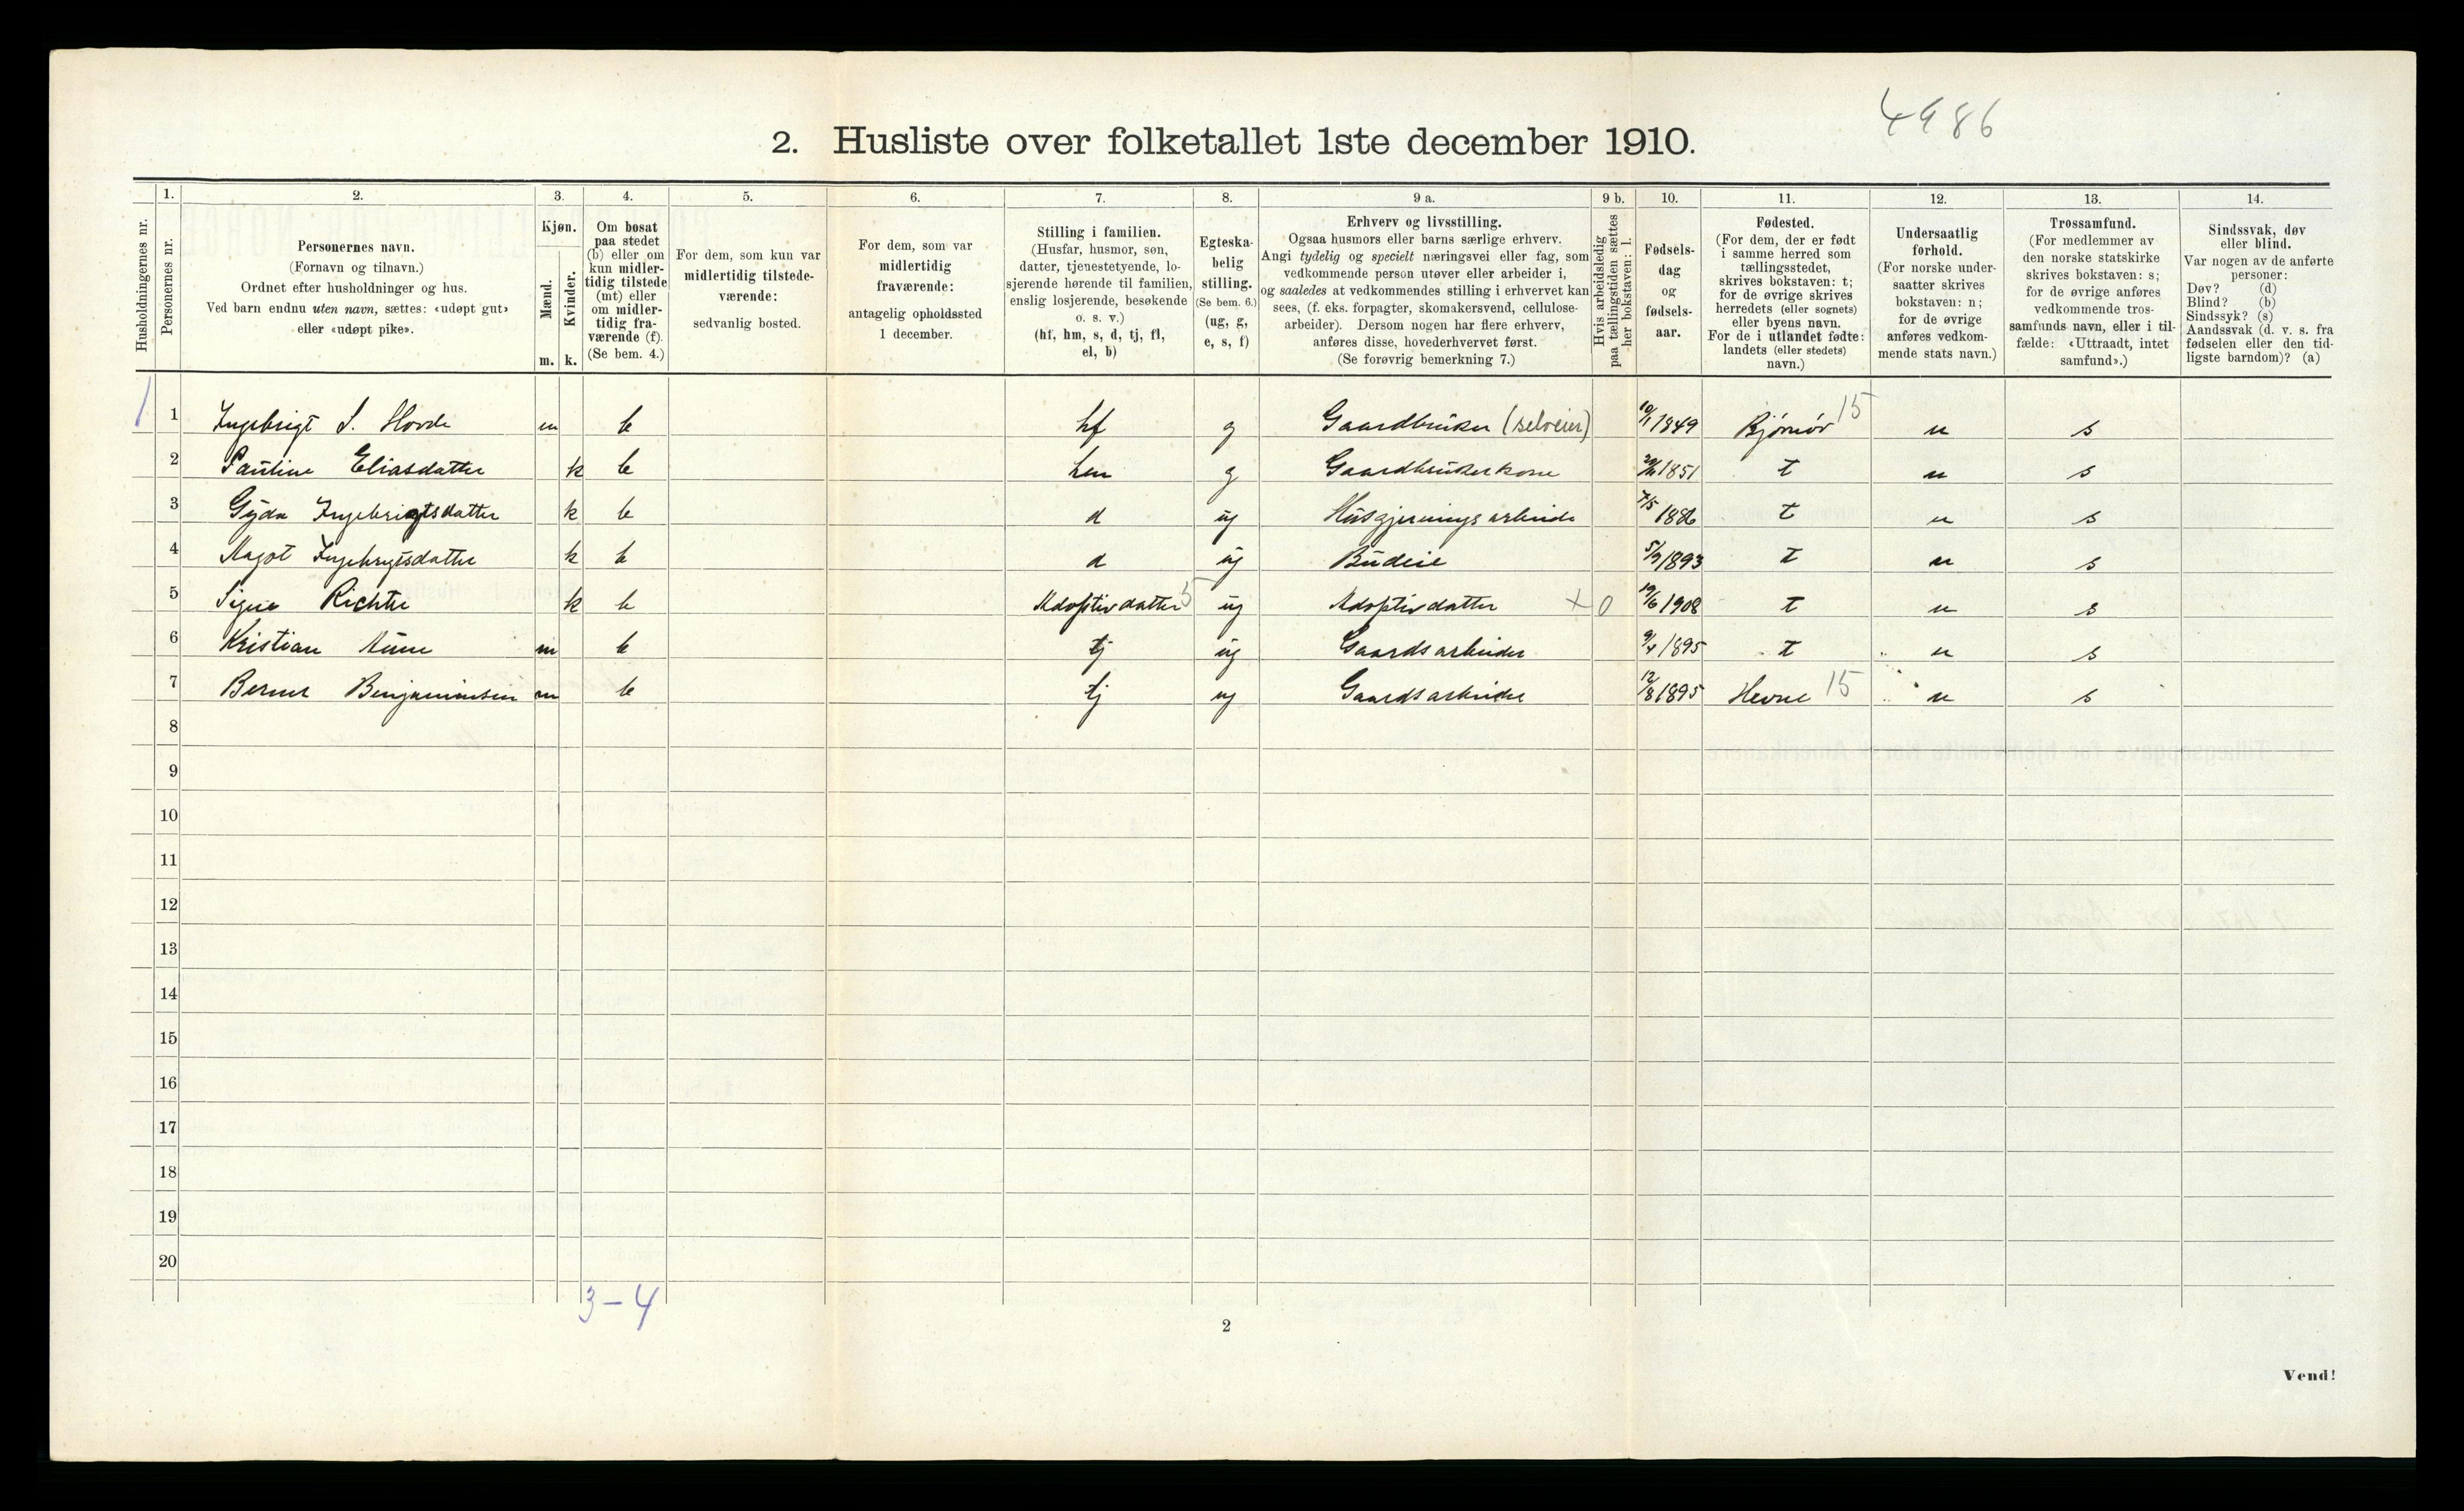 4986
2. Husliste over folketallet 1ste december 1910.
Husholdningernes nr.
1. Personernes nr.
2. Personernes navn.
(Fornavn og tilnavn.)
Ordnet efter husholdninger og hus.
Ved barn endnu uten navn, sættes: «udøpt gut»
eller «udøpt pike».
3. Kjøn.
Mænd. m.
Kvinder. k.
4. Om bosat
paa stedet
(b) eller om
kun midler-
tidig tilstede
(mt) eller
om midler-
tidig fra-
værende (f).
(Se bem. 4.)
5. For dem, som kun var
midlertidig tilstede-
værende:
sedvanlig bosted.
6. For dem, som var
midlertidig
fraværende:
antagelig opholdssted
1 december.
7. Stilling i familien.
(Husfar, husmor, søn,
datter, tjenestetyende, lo-
sjerende hørende til familien,
enslig losjerende, besøkende
o. s. v.)
(hf, hm, s, d, tj, fl,
el, b)
8. Egteska-
belig
stilling.
(Se bem. 6.)
(ug, g,
e, s, f)
9 a. Erhverv og livsstilling.
Ogsaa husmors eller barns særlige erhverv.
Angi tydelig og specielt næringsvei eller fag, som
vedkommende person utøver eller arbeider i,
og saaledes at vedkommendes stilling i erhvervet kan
sees, (f. eks. forpagter, skomakersvend, cellulose-
arbeider). Dersom nogen har flere erhverv,
anføres disse, hovederhvervet først.
(Se forøvrig bemerkning 7.)
9 b. Hvis arbeidsledig
paa tællingstiden sættes
her bokstaven: l.
10. Fødsels-
dag
og
fødsels-
aar.
11. Fødested.
(For dem, der er født
i samme herred som
tællingsstedet,
skrives bokstaven: t;
for de øvrige skrives
herredets (eller sognets)
eller byens navn.
For de i utlandet fødte:
landets (eller stedets)
navn.)
12. Undersaatlig
forhold.
(For norske under-
saatter skrives
bokstaven: n;
for de øvrige
anføres vedkom-
mende stats navn.)
13. Trossamfund.
(For medlemmer av
den norske statskirke
skrives bokstaven: s;
for de øvrige anføres
vedkommende tros-
samfunds navn, eller i til-
fælde: «Uttraadt, intet
samfund».)
14. Sindssvak, døv
eller blind.
Var nogen av de anførte
personer:
Døv? (d)
Blind? (b)
Sindssyk? (s)
Aandssvak (d. v. s. fra
fødselen eller den tid-
ligste barndom)? (a)
1 1 Ingebrigt S. Hovde m b hf g Gaardbruker (selveier) 10/1 1849 Bjørnør 15 n s
2 Pauline Eliasdatter k b hm g Gaardbrukerkone 1851 t n s
3 Gyda Ingebrigtsdatter k b d ug Husgjerningsarbeide 7/5 1886 t n s
4 Magot Ingebrigtsdatter k b d ug Budeie 5/9 1893 t n s
5 Signe Richter k b Adoptivdatter 5 ug Adoptivdatter + 0 19/6 1908 t n s
6 Kristian Aune m b tj ug Gaardsarbeider 9/4 1895 t n s
7 Berner Benjaminsen m b tj ug Gaardsarbeider 12/8 1895 Hevne 15 n s
8
9
10
11
12
13
14
15
16
17
18
19
20
3-4
2
Vend!